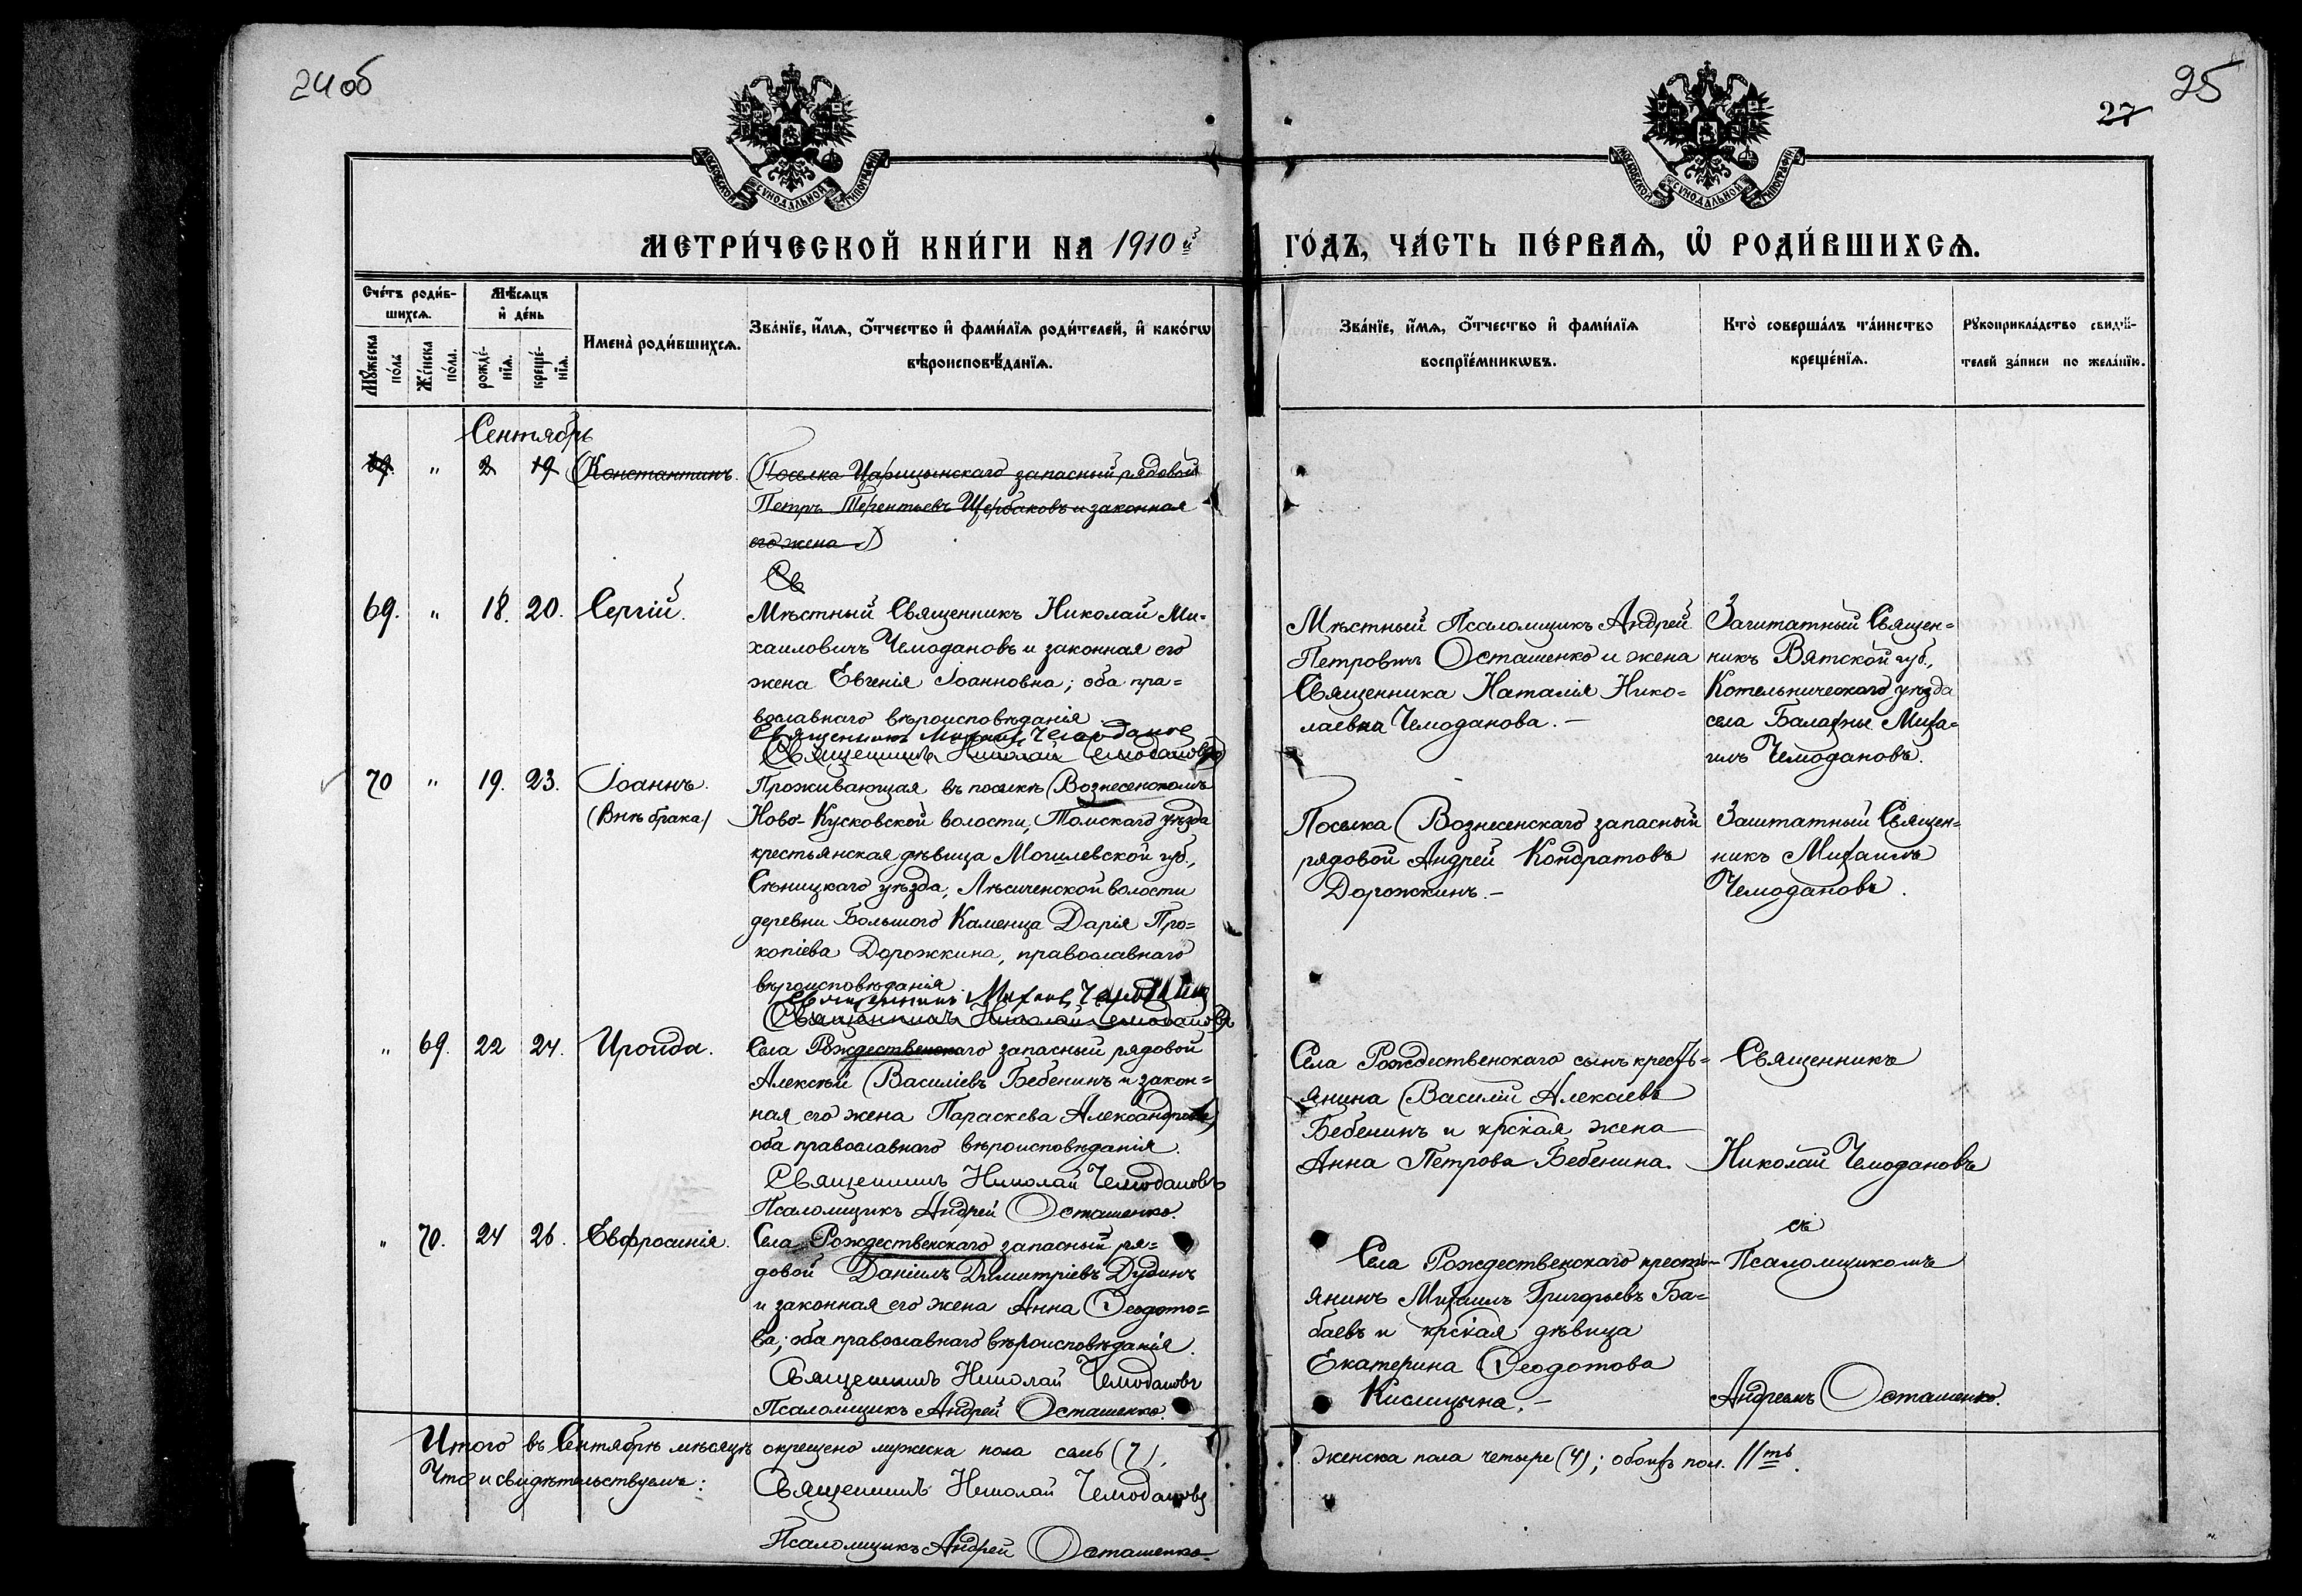 24 об
25
27
МОСКОВСКОЙ СѴНОДАЛЬНОЙ ТИПОГРАФІИ
МОСКОВСКОЙ СѴНОДАЛЬНОЙ ТИПОГРАФІИ
МЕТРИ́ЧЕСКОЙ КНИ́ГИ НА 1910 й
ГО́ДЪ, ЧА́СТЬ ПЕ́РВАѦ, Ѡ҆ РОДИ́ВШИХСѦ.
Сче́тъ роди́в-
шихсѧ.
Мꙋжеска по́ла
Же́нска по́ла.
Мѣ́сѧцъ
и҆ де́нь
рожде́-
нїѧ.
креще́-
нїѧ.
Имена̀ роди́вшихсѧ.
Зва́нїе, и҆́мѧ, ѻ҆́тчество и҆ фами́лїѧ роди́телей, и҆ како́гѡ
вѣроисповѣ́данїѧ.
Зва́нїе, и҆́мѧ, ѻ҆́тчество и҆ фами́лїѧ
воспрїе́мникѡвъ.
Кто̀ соверша́лъ та́инство
креще́нїѧ.
Рꙋкоприкла́дство свидѣ́-
телей за́писи по жела́нїю.
Сентябрь
69. " 2 19 Константинъ. Поселка Царицынскаго запасный рядовой
Петръ Терентьевъ Щербаковъ и законная
его жена
Св
69. " 18. 20. Сергій. Мѣстный Священникъ Николай Ми-
хаиловичъ Чемодановъ и законная его
жена Евгенія Іоанновна; оба пра-
вославнаго вѣроисповѣданія.
Священникъ Михаилъ Чемодановъ
Священникъ Николай Чемодановъ
Мѣстный Псаломщикъ Андрей
Петровичъ Осташенко и жена
Священника Наталія Нико-
лаевна Чемоданова. –
Заштатный Священ-
никъ Вятской губ.,
Котельническаго уѣзда
села Балахны Миха-
илъ Чемодановъ.
70 " 19. 23. Іоаннъ. Проживающая въ поселкѣ Вознесенскомъ
(Внѣ брака) Ново-Кусковской волости, Томскаго уѣзда
крестьянская дѣвица Могилевской губ.,
Сѣнницкаго уѣзда, Лѣсиченской волости
деревни Большого Каменца Дарія Про-
копіева Дорожкина, православнаго
вѣроисповѣданія.
Священникъ Михаилъ Чемодановъ
Священникъ Николай Чемодановъ
Поселка Вознесенскаго запасный
рядовой Андрей Кондратовъ
Дорожкинъ. –
Заштатный Священ-
никъ Михаилъ
Чемодановъ.
" 69. 22 24. Ироида. Села Рождественскаго запасный рядовой
Алексѣй Василіевъ Бебенинъ и закон-
ная его жена Параскева Александрова,
оба православнаго вѣроисповѣданія.
Священникъ Николай Чемодановъ
Псаломщикъ Андрей Осташенко.
Села Рождественскаго сынъ кресть-
янина Василій Алексѣевъ
Бебенинъ и крская жена
Анна Петрова Бебенина.
Священникъ
Николай Чемодановъ
" 70. 24 26. Евфросинія. Села Рождественскаго запасный ря-
довой Даніилъ Димитріевъ Дудинъ
и законная его жена Анна Ѳеодото-
ва; оба православнаго вѣроисповѣданія.
Священникъ Николай Чемодановъ
Псаломщикъ Андрей Осташенко.
Села Рождественскаго кресть-
янинъ Михаилъ Григорьевъ Ба-
баевъ и крская дѣвица
Екатерина Ѳеодотова
Кислицына. –
съ
Псаломщикомъ
Андреемъ Осташенко.
Итого въ Сентябрѣ мѣсяцѣ окрещено мужеска пола семь (7),
женска пола четыре (4); обоихъ пол. 11ть.
Что и свидѣтельствуемъ: Священникъ Николай Чемодановъ
Псаломщикъ Андрей Осташенко.